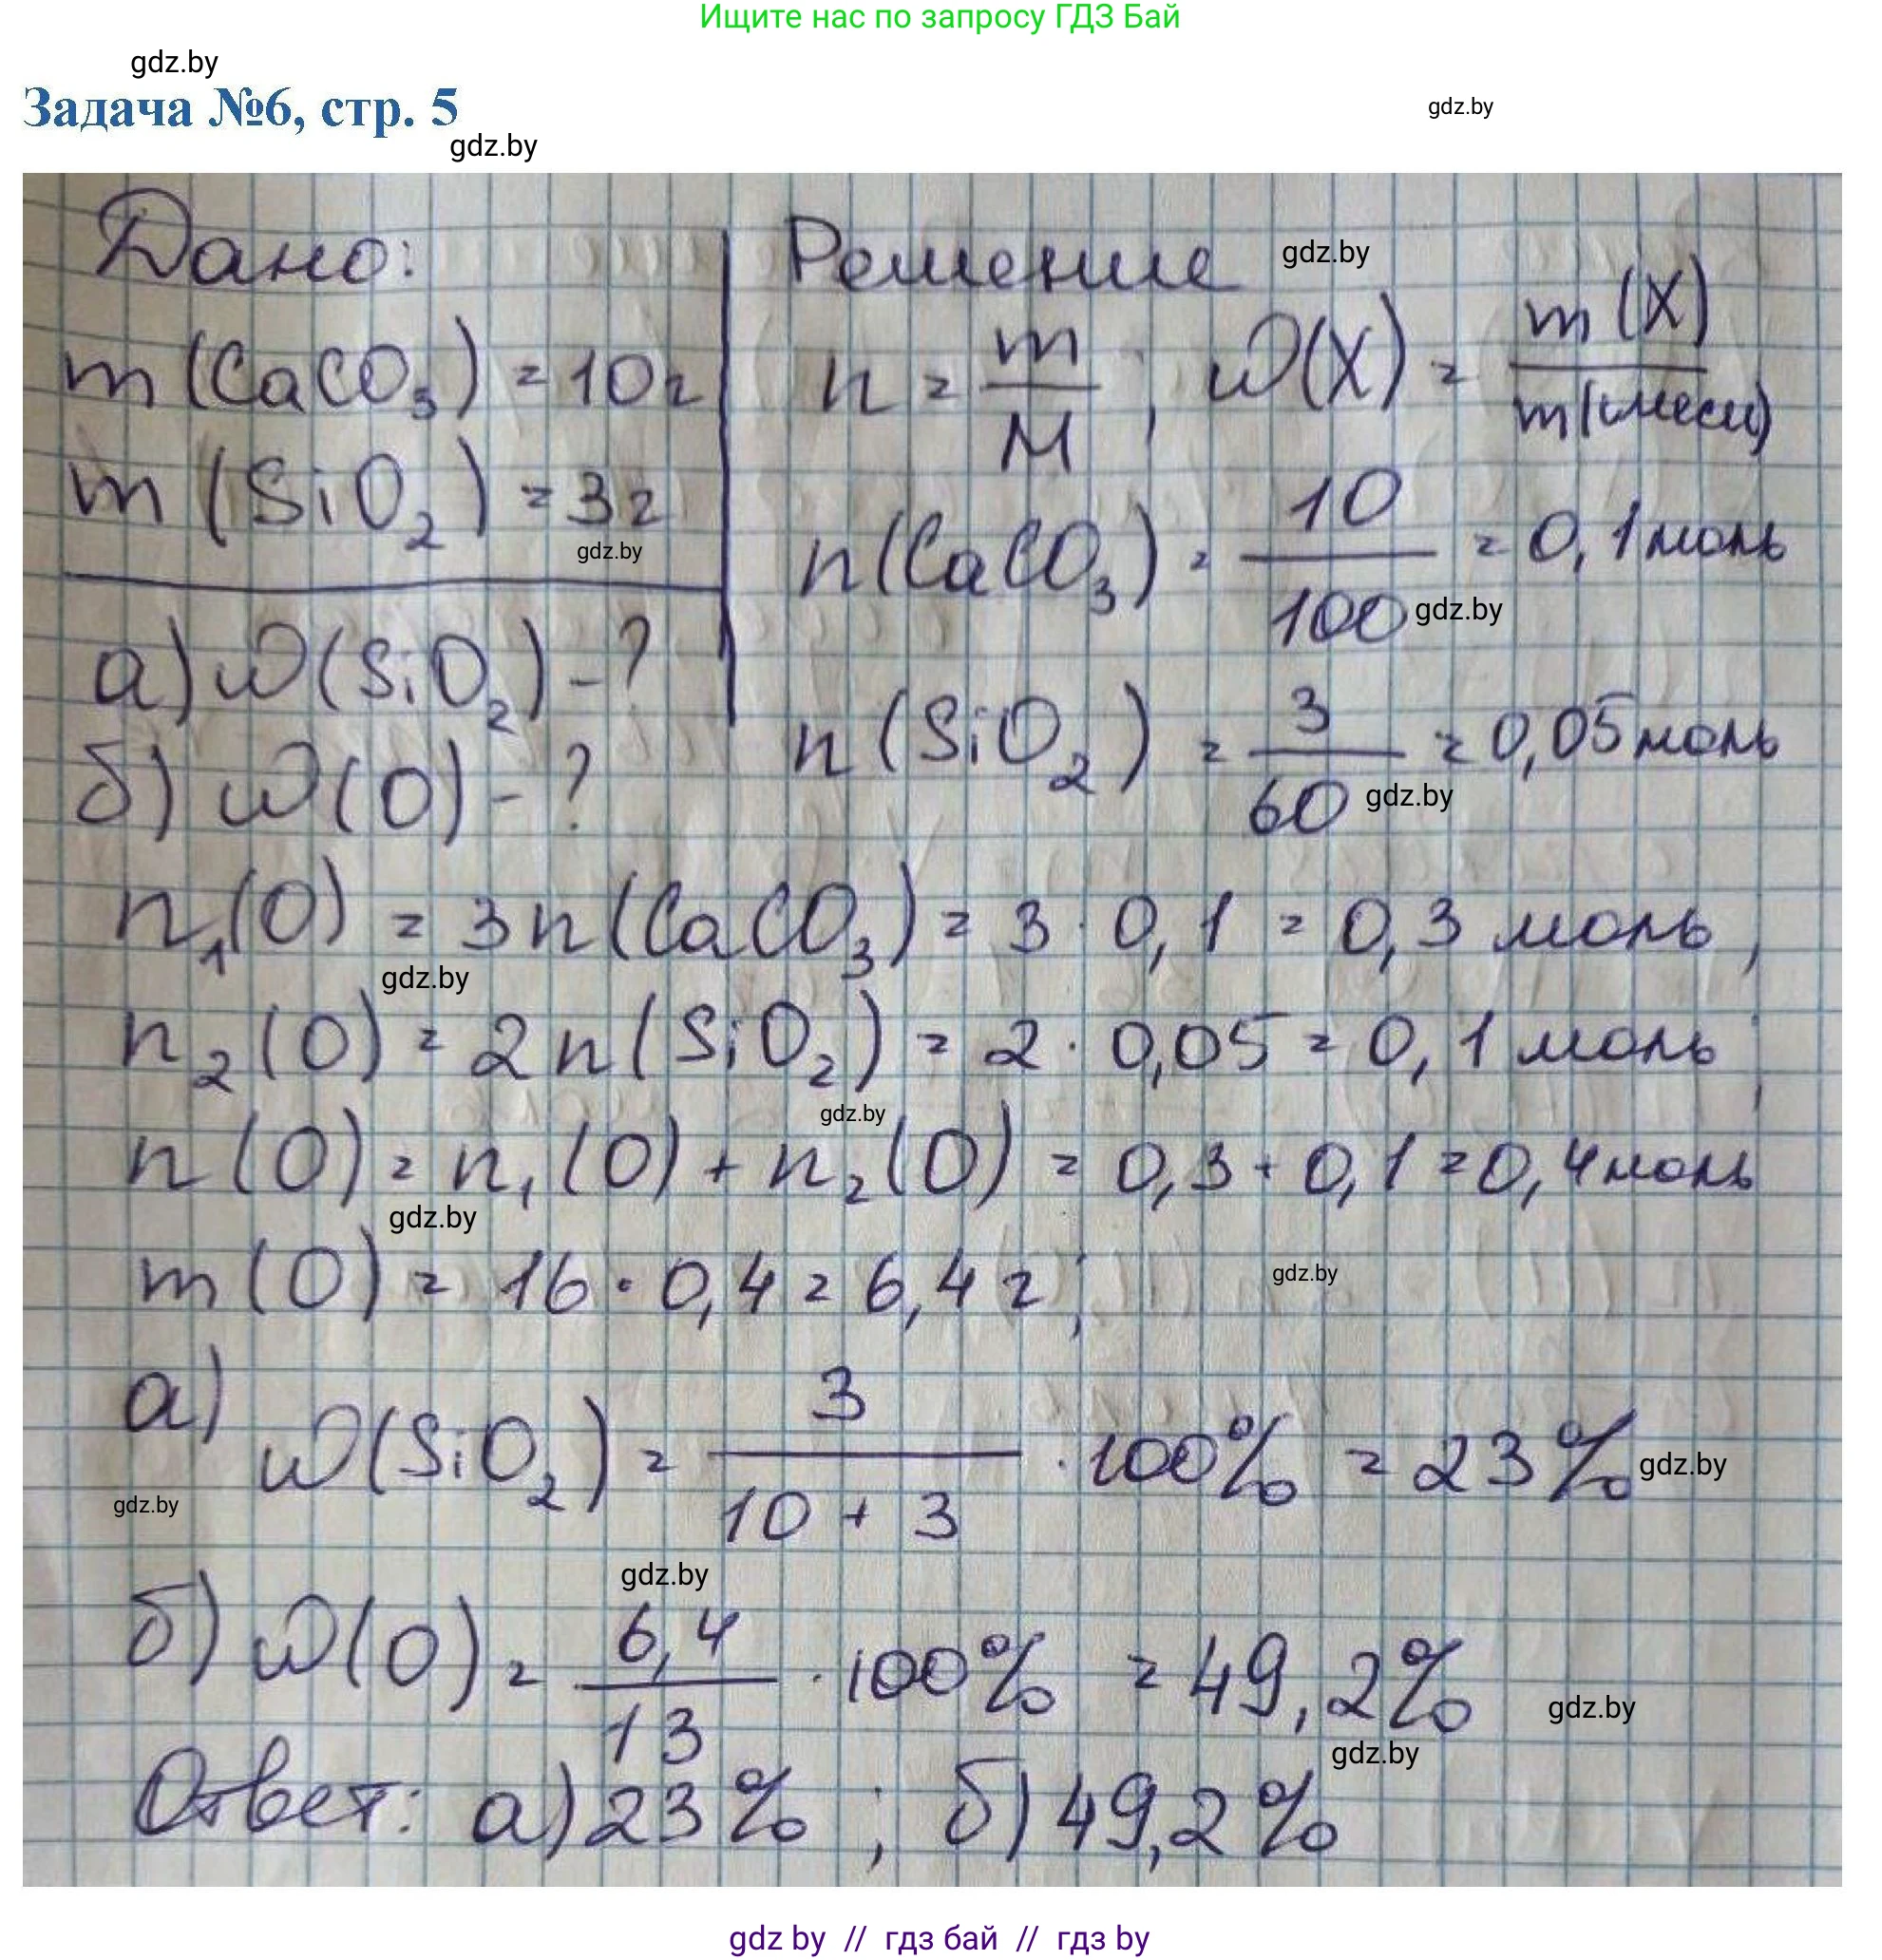 Ищите нас по запросу ГДЗ Бай
gdz.by
Задача №6, стр. 5
gdz.by
gdz.by
Дано:
m(CaCO₃) = 10г
m(SiO₂) = 3г
gdz.by
а) ω(SiO₂) - ?
б) ω(O) - ?
Решение
gdz.by
n = m/M ; ω(X) = m(X)/m(смеси)
n(CaCO₃) = 10/100 = 0,1 моль
gdz.by
n(SiO₂) = 3/60 = 0,05 моль
gdz.by
n₁(O) = 3n(CaCO₃) = 3 · 0,1 = 0,3 моль ;
gdz.by
n₂(O) = 2n(SiO₂) = 2 · 0,05 = 0,1 моль ;
gdz.by
n(O) = n₁(O) + n₂(O) = 0,3 + 0,1 = 0,4 моль
gdz.by
m(O) = 16 · 0,4 = 6,4 г ;
gdz.by
а) ω(SiO₂) = 3/(10 + 3) · 100% = 23%
gdz.by
gdz.by
gdz.by
б) ω(O) = 6,4/13 · 100% = 49,2%
gdz.by
gdz.by
Ответ: а) 23% ; б) 49,2%
gdz by // гдз бай // гдз by